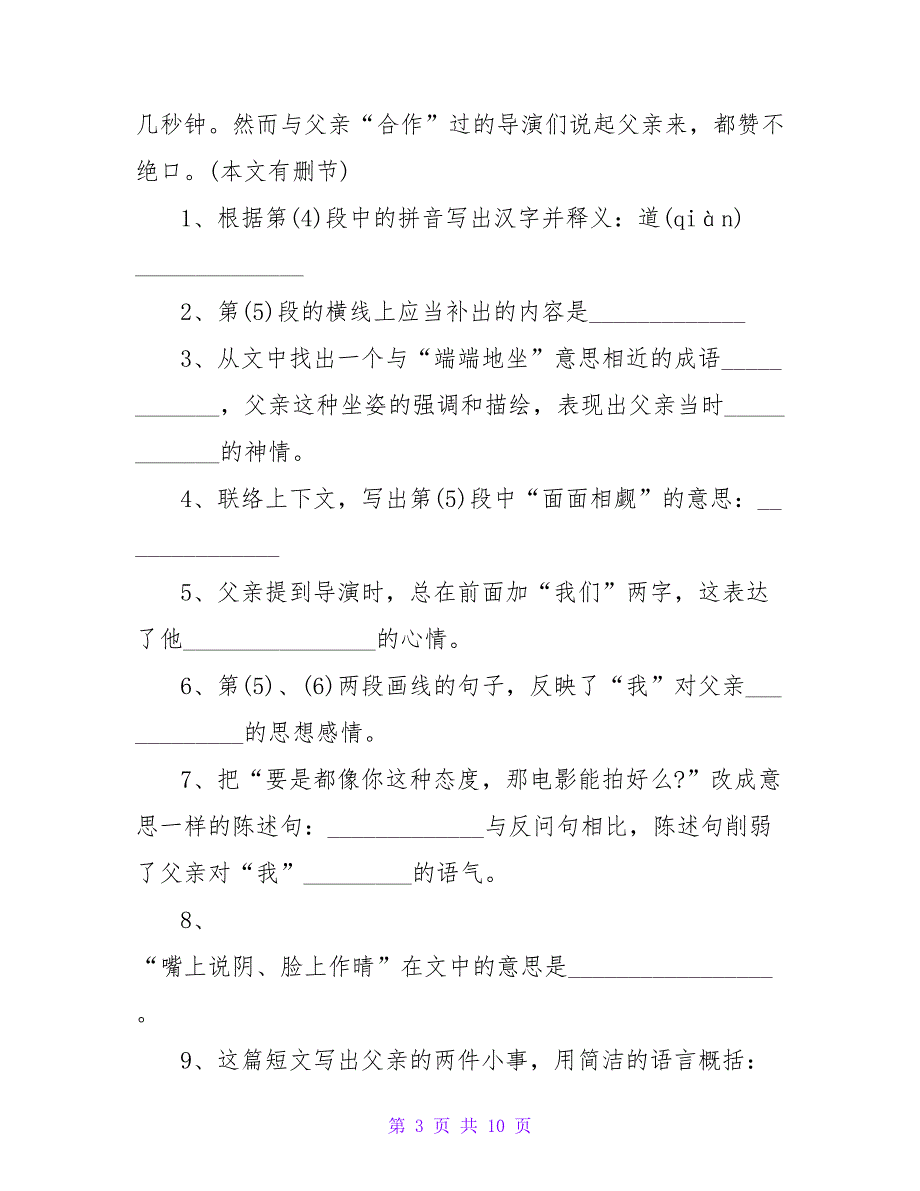 几秒钟。然而与父亲“合作”过的导演们说起父亲来，都赞不
绝口。(本文有删节)
1、根据第(4)段中的拼音写出汉字并释义：道(qiàn)
______________
2、第(5)段的横线上应当补出的内容是_____________
3、从文中找出一个与“端端地坐”意思相近的成语_____
_______，父亲这种坐姿的强调和描绘，表现出父亲当时_____
_______的神情。
4、联络上下文，写出第(5)段中“面面相觑”的意思：__
____________
5、父亲提到导演时，总在前面加“我们”两字，这表达
了他________________的心情。
6、第(5)、(6)两段画线的句子，反映了“我”对父亲___
_________的思想感情。
7、把“要是都像你这种态度，那电影能拍好么?”改成意
思一样的陈述句：_____________与反问句相比，陈述句削弱
了父亲对“我”_________的语气。
8、
“嘴上说阴、脸上作晴”在文中的意思是_________________
。
9、这篇短文写出父亲的两件小事，用简洁的语言概括：
第 3 页 共 10 页